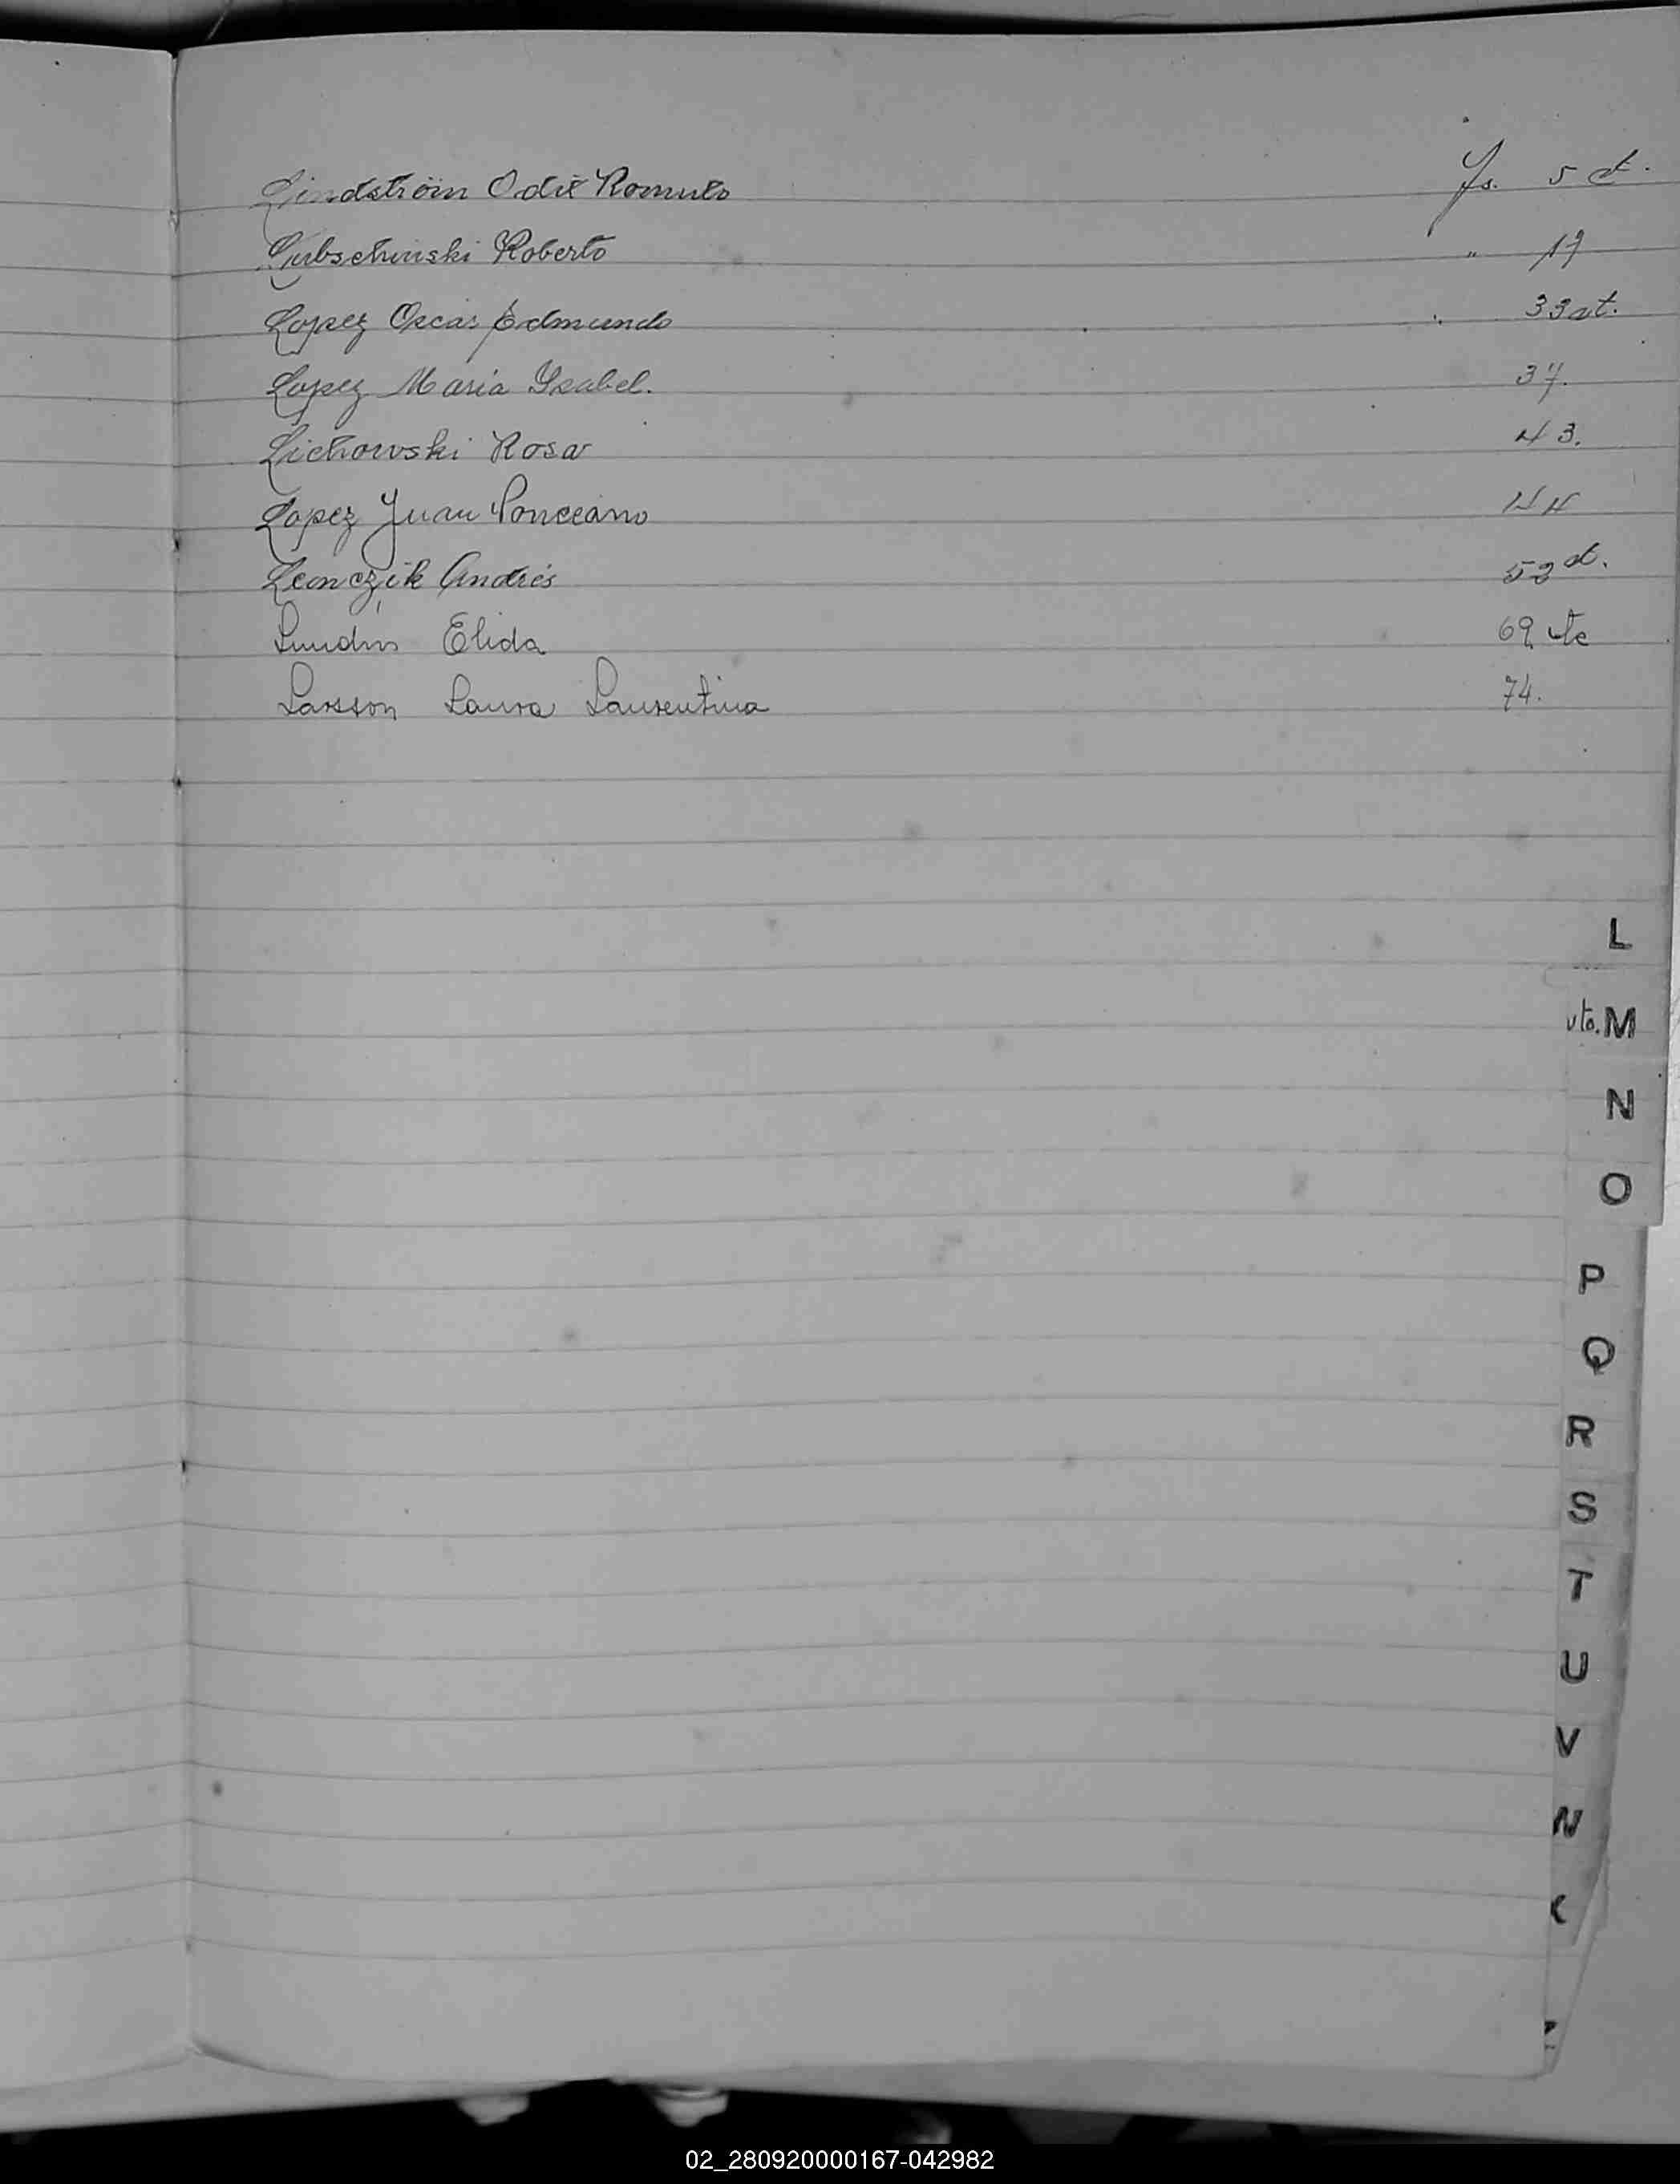 Lindström Odit Romulo fs. 5 vt.
Lubschinski Roberto " 17
Lopez Oscar Edmundo 33 vt.
Lopez Maria Ysabel. 37.
Lichowski Rosa 43.
Lopez Juan Ponceano 44
Lemczik Andrés 52 vt.
Lundin Elida 69 vte
Larsson Laura Laurentina 74.
L
vto. M
N
O
P
Q
R
S
T
U
V
Z
02_280920000167-042982